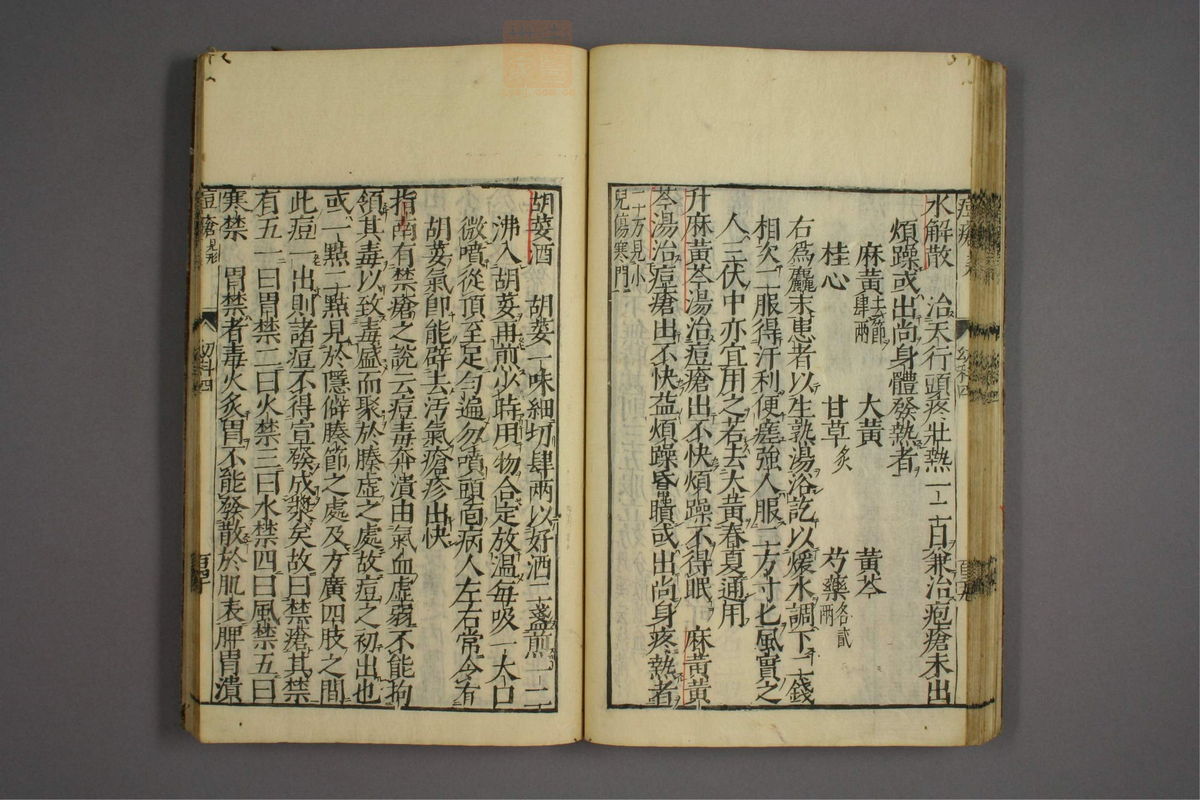 水解散　治天行頭疼壯熱一二日兼治疱瘡未出
煩躁或出尚身體發熱者
麻黃去節肆兩　大黃　黃芩
桂心　甘草炙　芍藥各貳兩
右爲麤末患者以生熟湯浴訖以煖水調下二錢
相次二服得汗利便瘥強人服二方寸匕風實之
人三伏中亦宜用之若去大黃春夏通用
升麻黃芩湯治痘瘡出不快煩躁不得眠　麻黃黃
芩湯治痘瘡出不快益煩躁昏聵或出尚身疼熱者
二方見小
兒傷寒門
胡荽酒　胡荽一味細切肆兩以好酒二盞煎一二
沸入胡荽再煎少時用物合定放温每吸一大口
微噴從頂至足勻遍勿噴頭面病人左右常令有
胡荽氣卽能辟去汚氣瘡疹出快
指南有禁瘡之說云痘毒奔潰由氣血虛弱不能拘
領其毒以致毒盛而聚於腠虛之處故痘之初出也
或一點二點見於隱僻腠節之處及方廣四肢之間
此痘一出則諸痘不得宣發成漿矣故曰禁瘡其禁
有五一曰胃禁二曰火禁三曰水禁四曰風禁五曰
寒禁　胃禁者毒火炙胃不能發散於肌表脾胃潰
痘瘡見形
幼科四